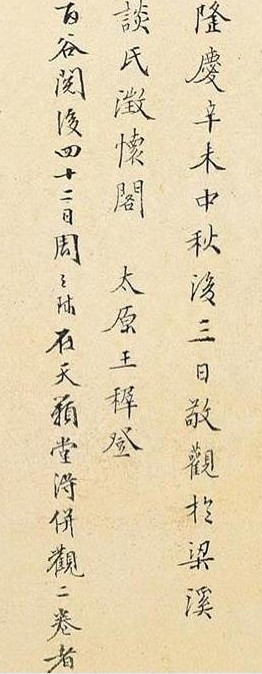 隆慶辛未中秋後三日敬觀於梁溪
談氏澂懷閣 太原王穉登
百谷閱後四十二日周之冕在天籟堂得併觀二卷者